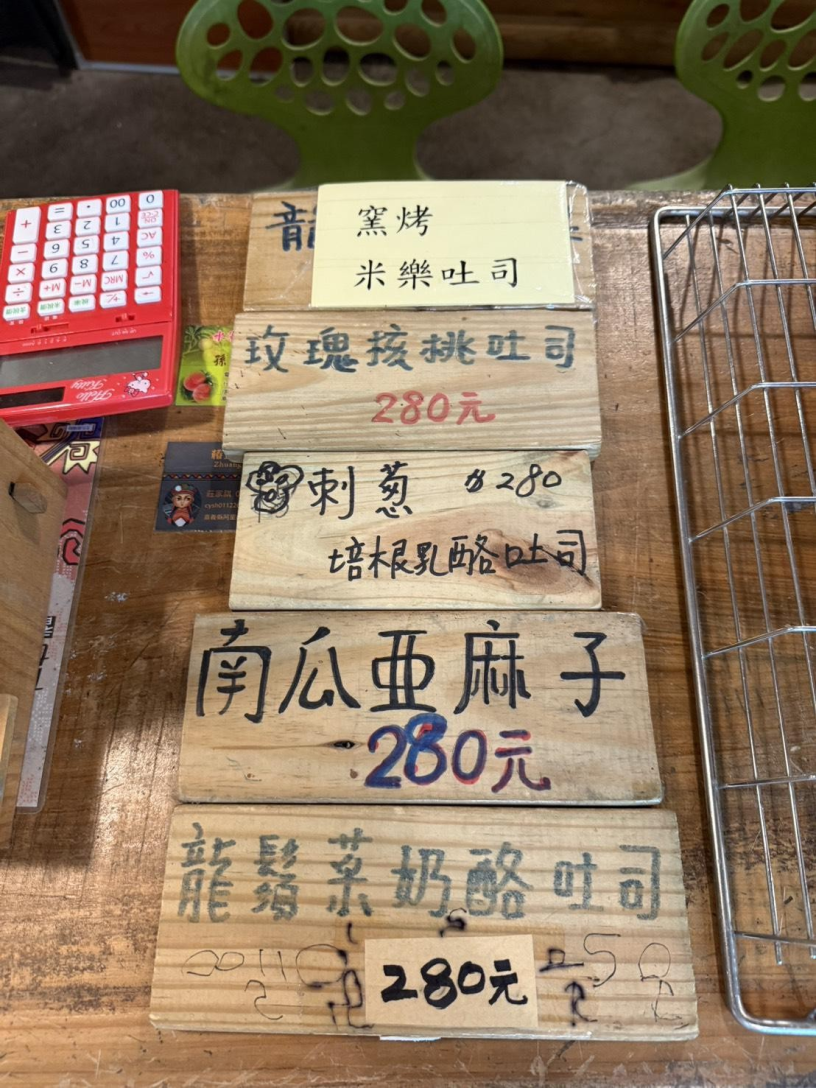 窯烤
米樂吐司
玫瑰核桃吐司
280元
刺葱 $280
培根乳酪吐司
南瓜亞麻子
280元
龍鬚菜奶酪吐司
280元
Hello Kitty